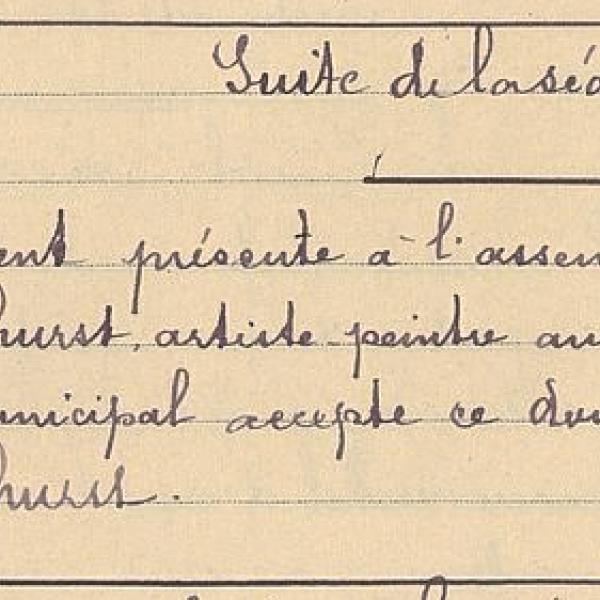 Suite de la séa
ent présente à l'assem
hurst, artiste-peintre au
unicipal accepte ce don
hurst.